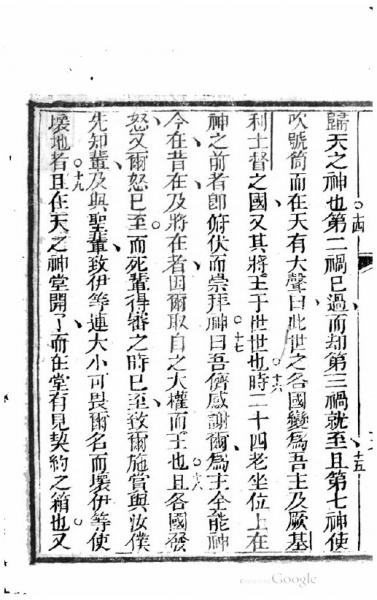 歸天之神也○十四第二禍已過而却第三禍就至○十五且第七神使
吹號筒而在天有大聲曰此世之各國變為吾主及厥基
利士督之國又其將王于世世也○十六時二十四老坐位上在
神之前者卽俯伏而崇拜神○十七曰吾儕感謝爾為主全能神
今在昔在及將在者因爾取自之大權而王也○十八且各國發
怒又爾怒已至而死輩得審之時已至致爾施賞與汝僕
先知輩及與聖輩致伊等連大小可畏爾名而壞伊等使
壞地者○十九且在天之神堂開了而在堂有見契約之箱也○又
Google